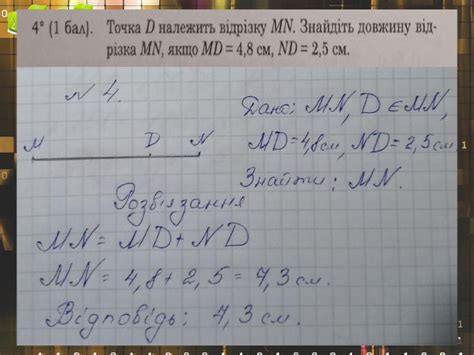 4° (1 бал). Точка D належить відрізку MN. Знайдіть довжину від-
різка MN, якщо MD = 4,8 см, ND = 2,5 см.
N 4.
Дано: MN, D ∈ MN,
M D N
MD = 4,8 см, ND = 2,5 см.
Знайти: MN.
Розв'язання
MN = MD + ND
MN = 4,8 + 2,5 = 7,3 см.
Відповідь: 7,3 см.